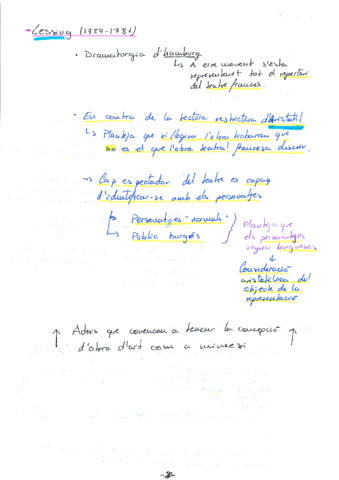 - Lessing (1729-1781)
· Dramatorgia d'hamburg
↳ A ere moment s'esta
representant tot el repertori
del teatre francès.
· En contra de la lectora restrictiva d'Aristòtil
↳ Planteja que si llegim l'obra trobarem que
no es el que l'obra teatral francesa discriu.
→ Cap espectador del teatre es capaç
d'identificar-se amb els personatges
↳ Personatges "normals"
↳ Públic burgès
Planteja que
els personatges
siguen burguesos
↓
Consideració
aristotèlica del
objecte de la
representació
↑ Autors que comencen a tencar la concepció ↑
d'obra d'art com a mimesi